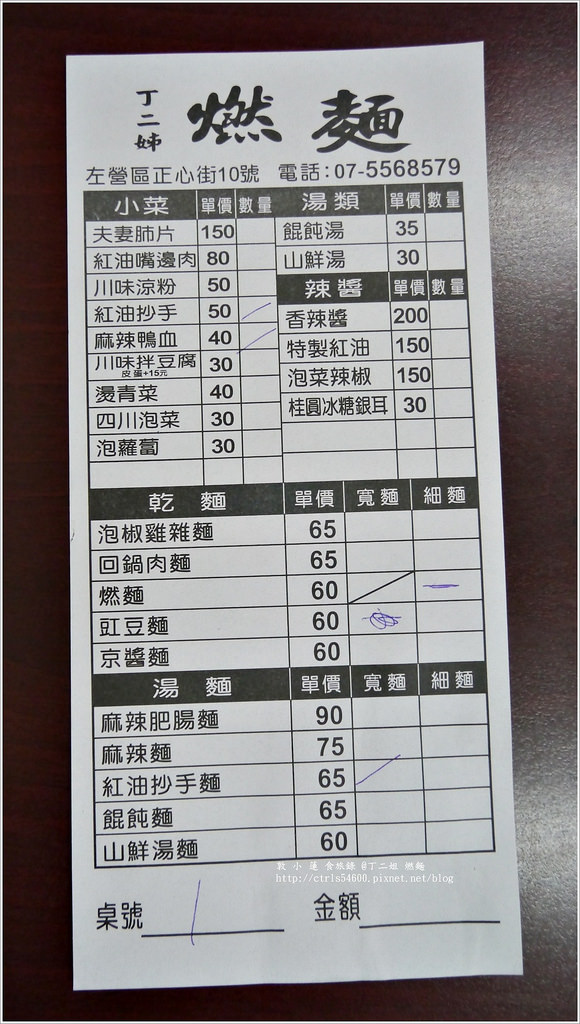 丁二姊 燃麵
左營區正心街10號 電話:07-5568579
小菜 單價 數量
夫妻肺片 150
紅油嘴邊肉 80
川味涼粉 50
紅油抄手 50
麻辣鴨血 40
川味拌豆腐 30
皮蛋+15元
燙青菜 40
四川泡菜 30
泡蘿蔔 30
湯類 單價 數量
餛飩湯 35
山鮮湯 30
辣醬 單價 數量
香辣醬 200
特製紅油 150
泡菜辣椒 150
桂圓冰糖銀耳 30
乾麵 單價 寬麵 細麵
泡椒雞雜麵 65
回鍋肉麵 65
燃麵 60 一
豇豆麵 60
京醬麵 60
湯麵 單價 寬麵 細麵
麻辣肥腸麵 90
麻辣麵 75
紅油抄手麵 65
餛飩麵 65
山鮮湯麵 60
敦小蓮食旅錄@丁二姐 燃麵
http://ctrls54600.pixnet.net/blog
桌號 1 金額